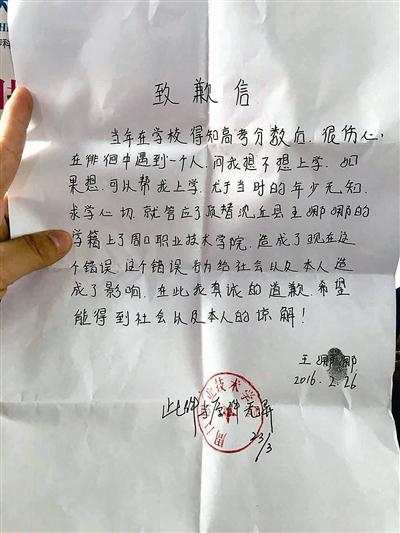 致歉信
当年在学校得知高考分数后,很伤心,
在徘徊中遇到一个人,问我想不想上学,如
果想,可以帮我上学,尤于当时的年少无知,
求学心切,就答应了顶替沈丘县王娜娜的
学籍上了周口职业技术学院,造成了现在这
个错误,这个错误行为给社会以及本人造
成了影响,在此我真诚的道歉,希望
能得到社会以及本人的谅解!
王娜娜
2016.2.26
业技术学
此件与原件无异
23/3